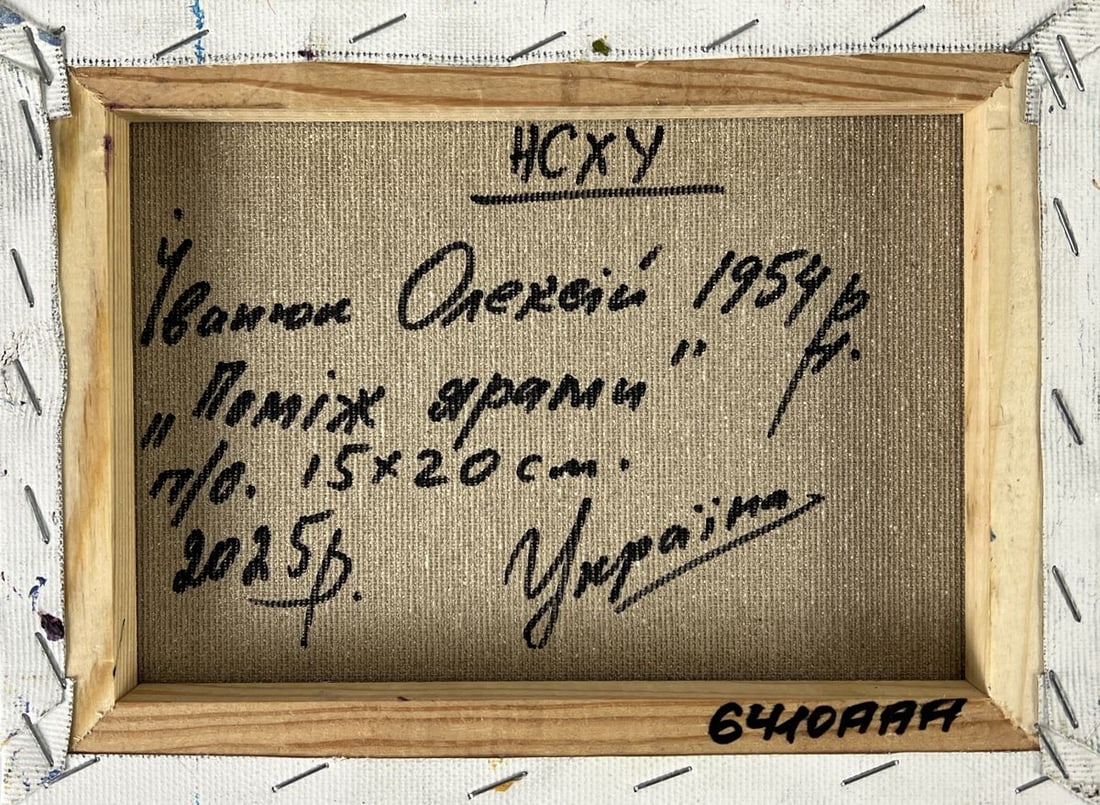 НСХУ
Іванюк Олексій 1954 р.
н.
„Поміж ярами"
п/о. 15×20 см.
2025р.
Україна
6410AAA